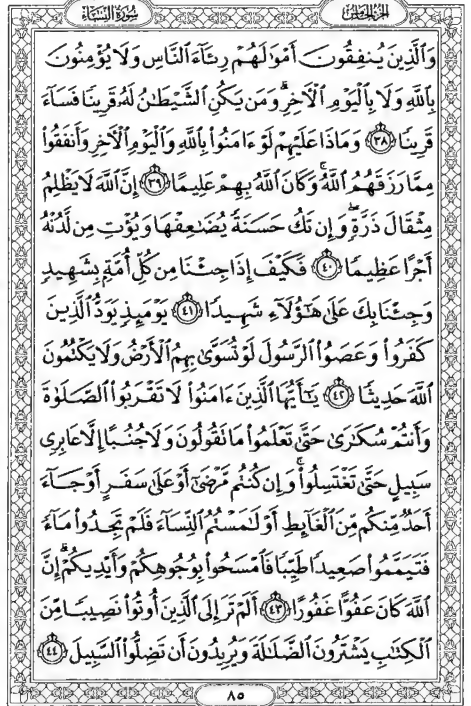 سُورَةُ النِّسَاءِ الجُزْءُ الخَامِسُ
وَالَّذِينَ يُنفِقُونَ أَمْوَالَهُمْ رِئَاءَ النَّاسِ وَلَا يُؤْمِنُونَ
بِاللَّهِ وَلَا بِالْيَوْمِ الْآخِرِ ۗ وَمَن يَكُنِ الشَّيْطَـٰنُ لَهُۥ قَرِينًا فَسَآءَ
قَرِينًا ﴿٣٨﴾ وَمَاذَا عَلَيْهِمْ لَوْ ءَامَنُوا۟ بِاللَّهِ وَالْيَوْمِ الْآخِرِ وَأَنفَقُوا۟
مِمَّا رَزَقَهُمُ اللَّهُ ۚ وَكَانَ اللَّهُ بِهِمْ عَلِيمًا ﴿٣٩﴾ إِنَّ اللَّهَ لَا يَظْلِمُ
مِثْقَالَ ذَرَّةٍ ۖ وَإِن تَكُ حَسَنَةً يُضَـٰعِفْهَا وَيُؤْتِ مِن لَّدُنْهُ
أَجْرًا عَظِيمًا ﴿٤٠﴾ فَكَيْفَ إِذَا جِئْنَا مِن كُلِّ أُمَّةٍۭ بِشَهِيدٍ
وَجِئْنَا بِكَ عَلَىٰ هَـٰٓؤُلَآءِ شَهِيدًا ﴿٤١﴾ يَوْمَئِذٍ يَوَدُّ الَّذِينَ
كَفَرُوا۟ وَعَصَوُا۟ الرَّسُولَ لَوْ تُسَوَّىٰ بِهِمُ الْأَرْضُ وَلَا يَكْتُمُونَ
اللَّهَ حَدِيثًا ﴿٤٢﴾ يَـٰٓأَيُّهَا الَّذِينَ ءَامَنُوا۟ لَا تَقْرَبُوا۟ الصَّلَوٰةَ
وَأَنتُمْ سُكَـٰرَىٰ حَتَّىٰ تَعْلَمُوا۟ مَا تَقُولُونَ وَلَا جُنُبًا إِلَّا عَابِرِى
سَبِيلٍ حَتَّىٰ تَغْتَسِلُوا۟ ۚ وَإِن كُنتُم مَّرْضَىٰٓ أَوْ عَلَىٰ سَفَرٍ أَوْ جَآءَ
أَحَدٌ مِّنكُم مِّنَ الْغَآئِطِ أَوْ لَـٰمَسْتُمُ النِّسَآءَ فَلَمْ تَجِدُوا۟ مَآءً
فَتَيَمَّمُوا۟ صَعِيدًا طَيِّبًا فَامْسَحُوا۟ بِوُجُوهِكُمْ وَأَيْدِيكُمْ ۗ إِنَّ
اللَّهَ كَانَ عَفُوًّا غَفُورًا ﴿٤٣﴾ أَلَمْ تَرَ إِلَى الَّذِينَ أُوتُوا۟ نَصِيبًا مِّنَ
الْكِتَـٰبِ يَشْتَرُونَ الضَّلَـٰلَةَ وَيُرِيدُونَ أَن تَضِلُّوا۟ السَّبِيلَ ﴿٤٤﴾
٨٥